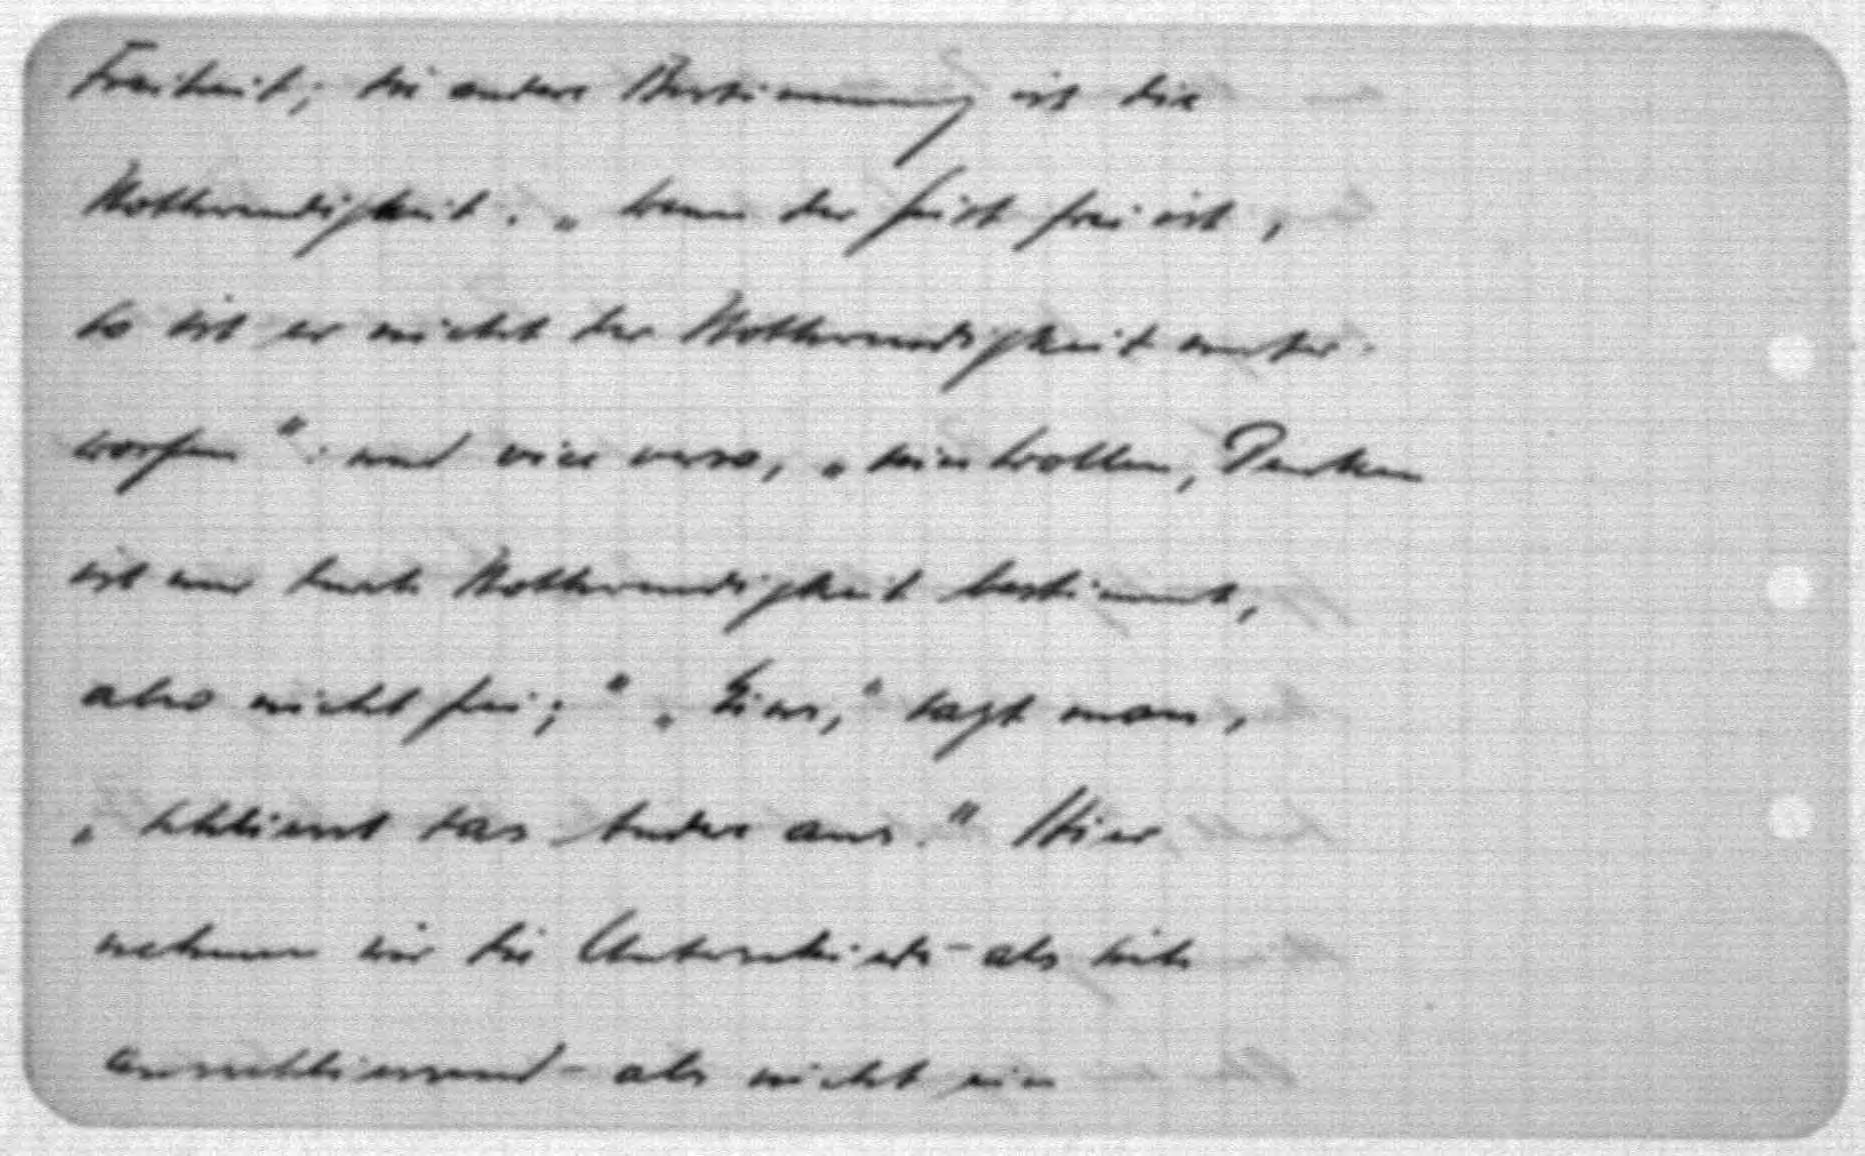 Freiheit; die andere Bestimmung ist die
Nothwendigkeit. „Wenn der Geist frei ist,
so ist er nicht der Nothwendigkeit unter-
worfen“: und vice versa, „sein Wollen, Denken
ist nur durch Nothwendigkeit bestimmt,
also nicht frei;“ „Eines,“ sagt man,
„schliesst das Andere aus.“ Hier
nehmen wir die Unterschiede - als sich
ausschliessend - als nicht ein